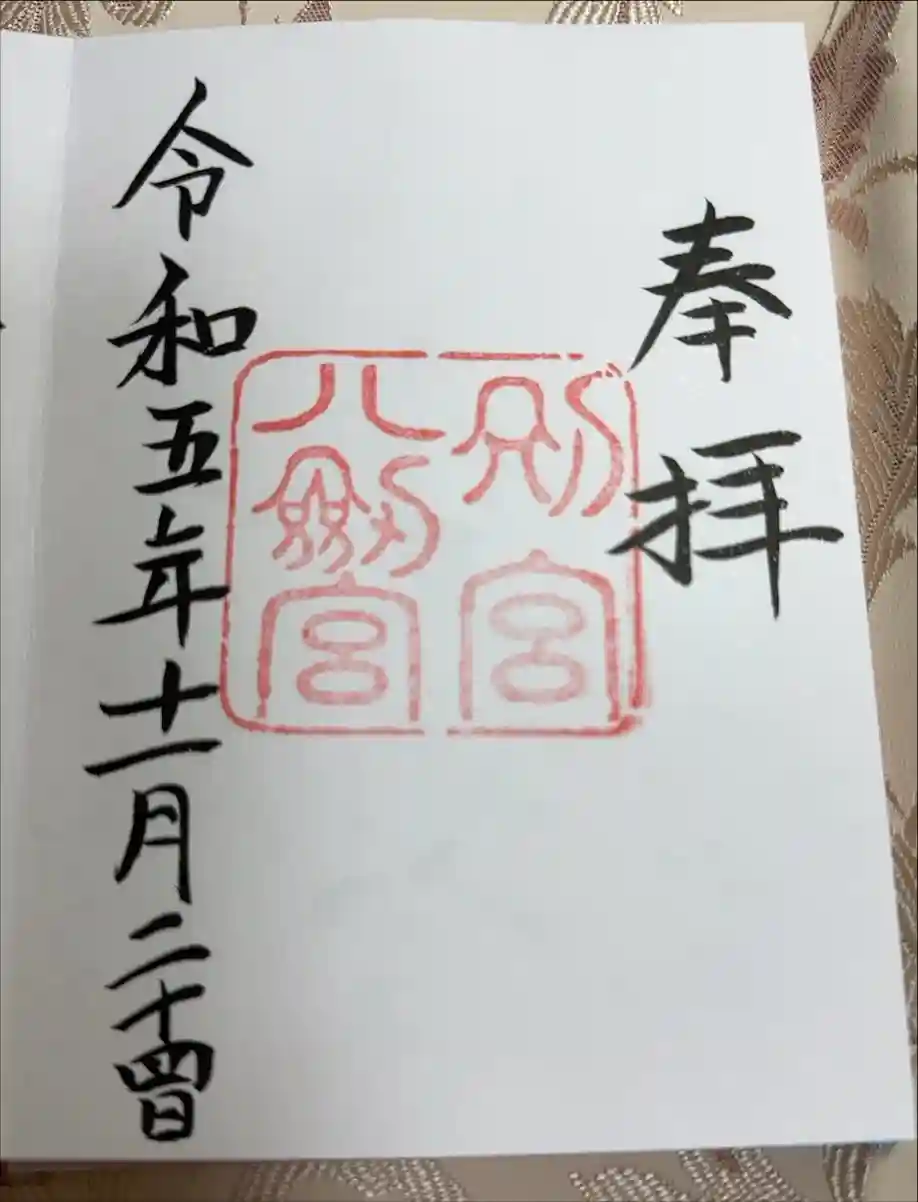 奉拝
別宮
八劔宮
令和五年十一月二十四日